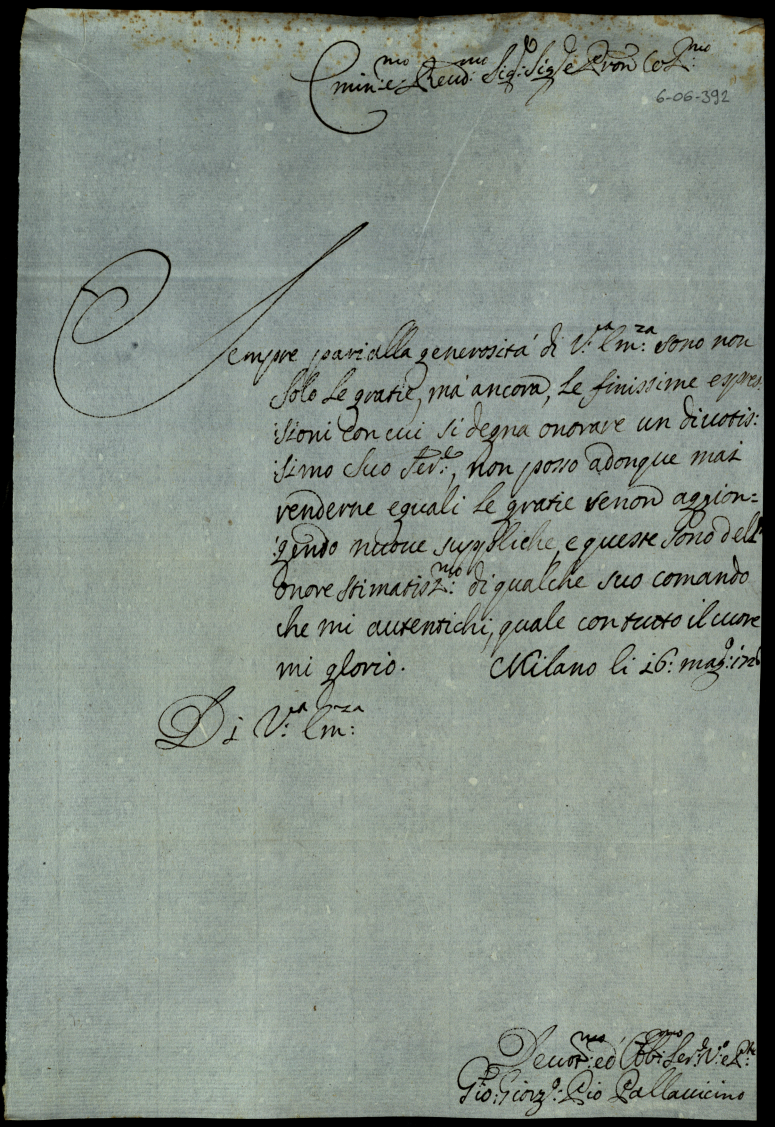 Emin:mo e Reud:mo Sig:r Sig:re e Pron Col:mo
6-06-392
Sempre pari alla generosità di V:ra Em:za sono non
solo le gratie, mà ancora, le finissime espres:
sioni con cui si degna onorare un diuotis:
simo suo Ser:e, non posso adonque mai
renderne eguali le gratie se non aggion=
gendo nuoue suppliche, e queste sono dell'
onore stimatiss:mo di qualche suo comando
che mi autentichi, quale con tutto il cuore
mi glorio. Milano li 16: mag:o
Di V:ra Em:za
Deuot:mo ed Obb:mo Ser:
Gio: Giorg:o Pio Pallauicino